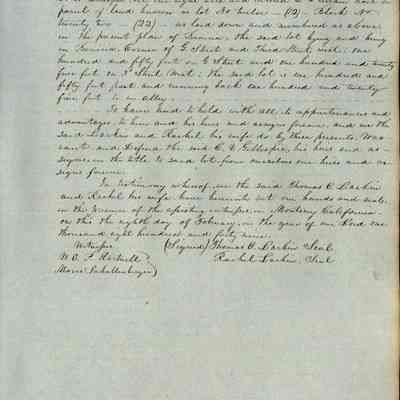 parcel of land known as lot No twelve — (12) — Block No
twenty two — (22) — as laid down and numbered as above
in the present plan of Benicia, the said lot lying and being
in Benicia Corner of G Street and Third Street, west. one
hundred and fifty feet on G Street and one hundred and twenty
five feet on 3d Street West. The said lot is one hundred and
fifty feet front and running back one hundred and twenty
five feet to an alley.
To have and to hold with all its appurtenances and
advantages to him and his heirs and assigns forever, and we the
said Larkin and Rachel his wife do by these presents, War
rant and Defend the said C. V. Gillespie, his heirs and as-
signs, in the title to said lot from ourselves our heirs and as
signs forever.
In testimony whereof, we the said Thomas O. Larkin
and Rachel his wife have hereunto set our hands and seals
in the presence of the witnesses, in Monterey California
on this the eighth day of February, in the year of our Lord one
thousand eight hundred and forty nine.
Witnesses (Signed) Thomas O. Larkin Seal
W. E. P. Hartnell Rachel Larkin, Seal
Maria Schallenberger